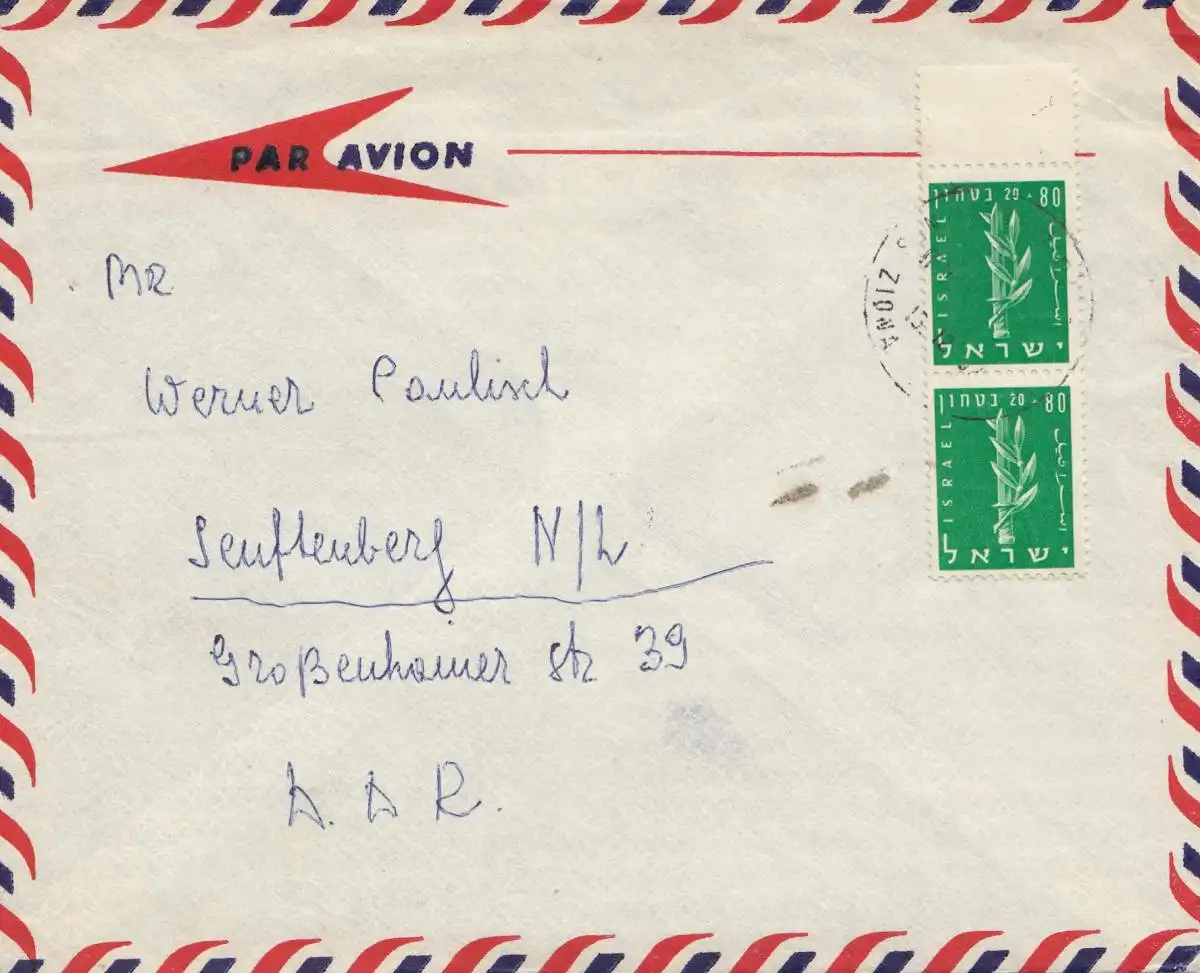 PAR AVION
Mr
Werner Paulisch
Senftenberg N/L
Großenhainer str 39
D. D. R.
80 + 20 בטחון
ISRAEL
اسرائيل
ישראל
80 + 20 בטחון
ISRAEL
اسرائيل
ישראל
ZIONA